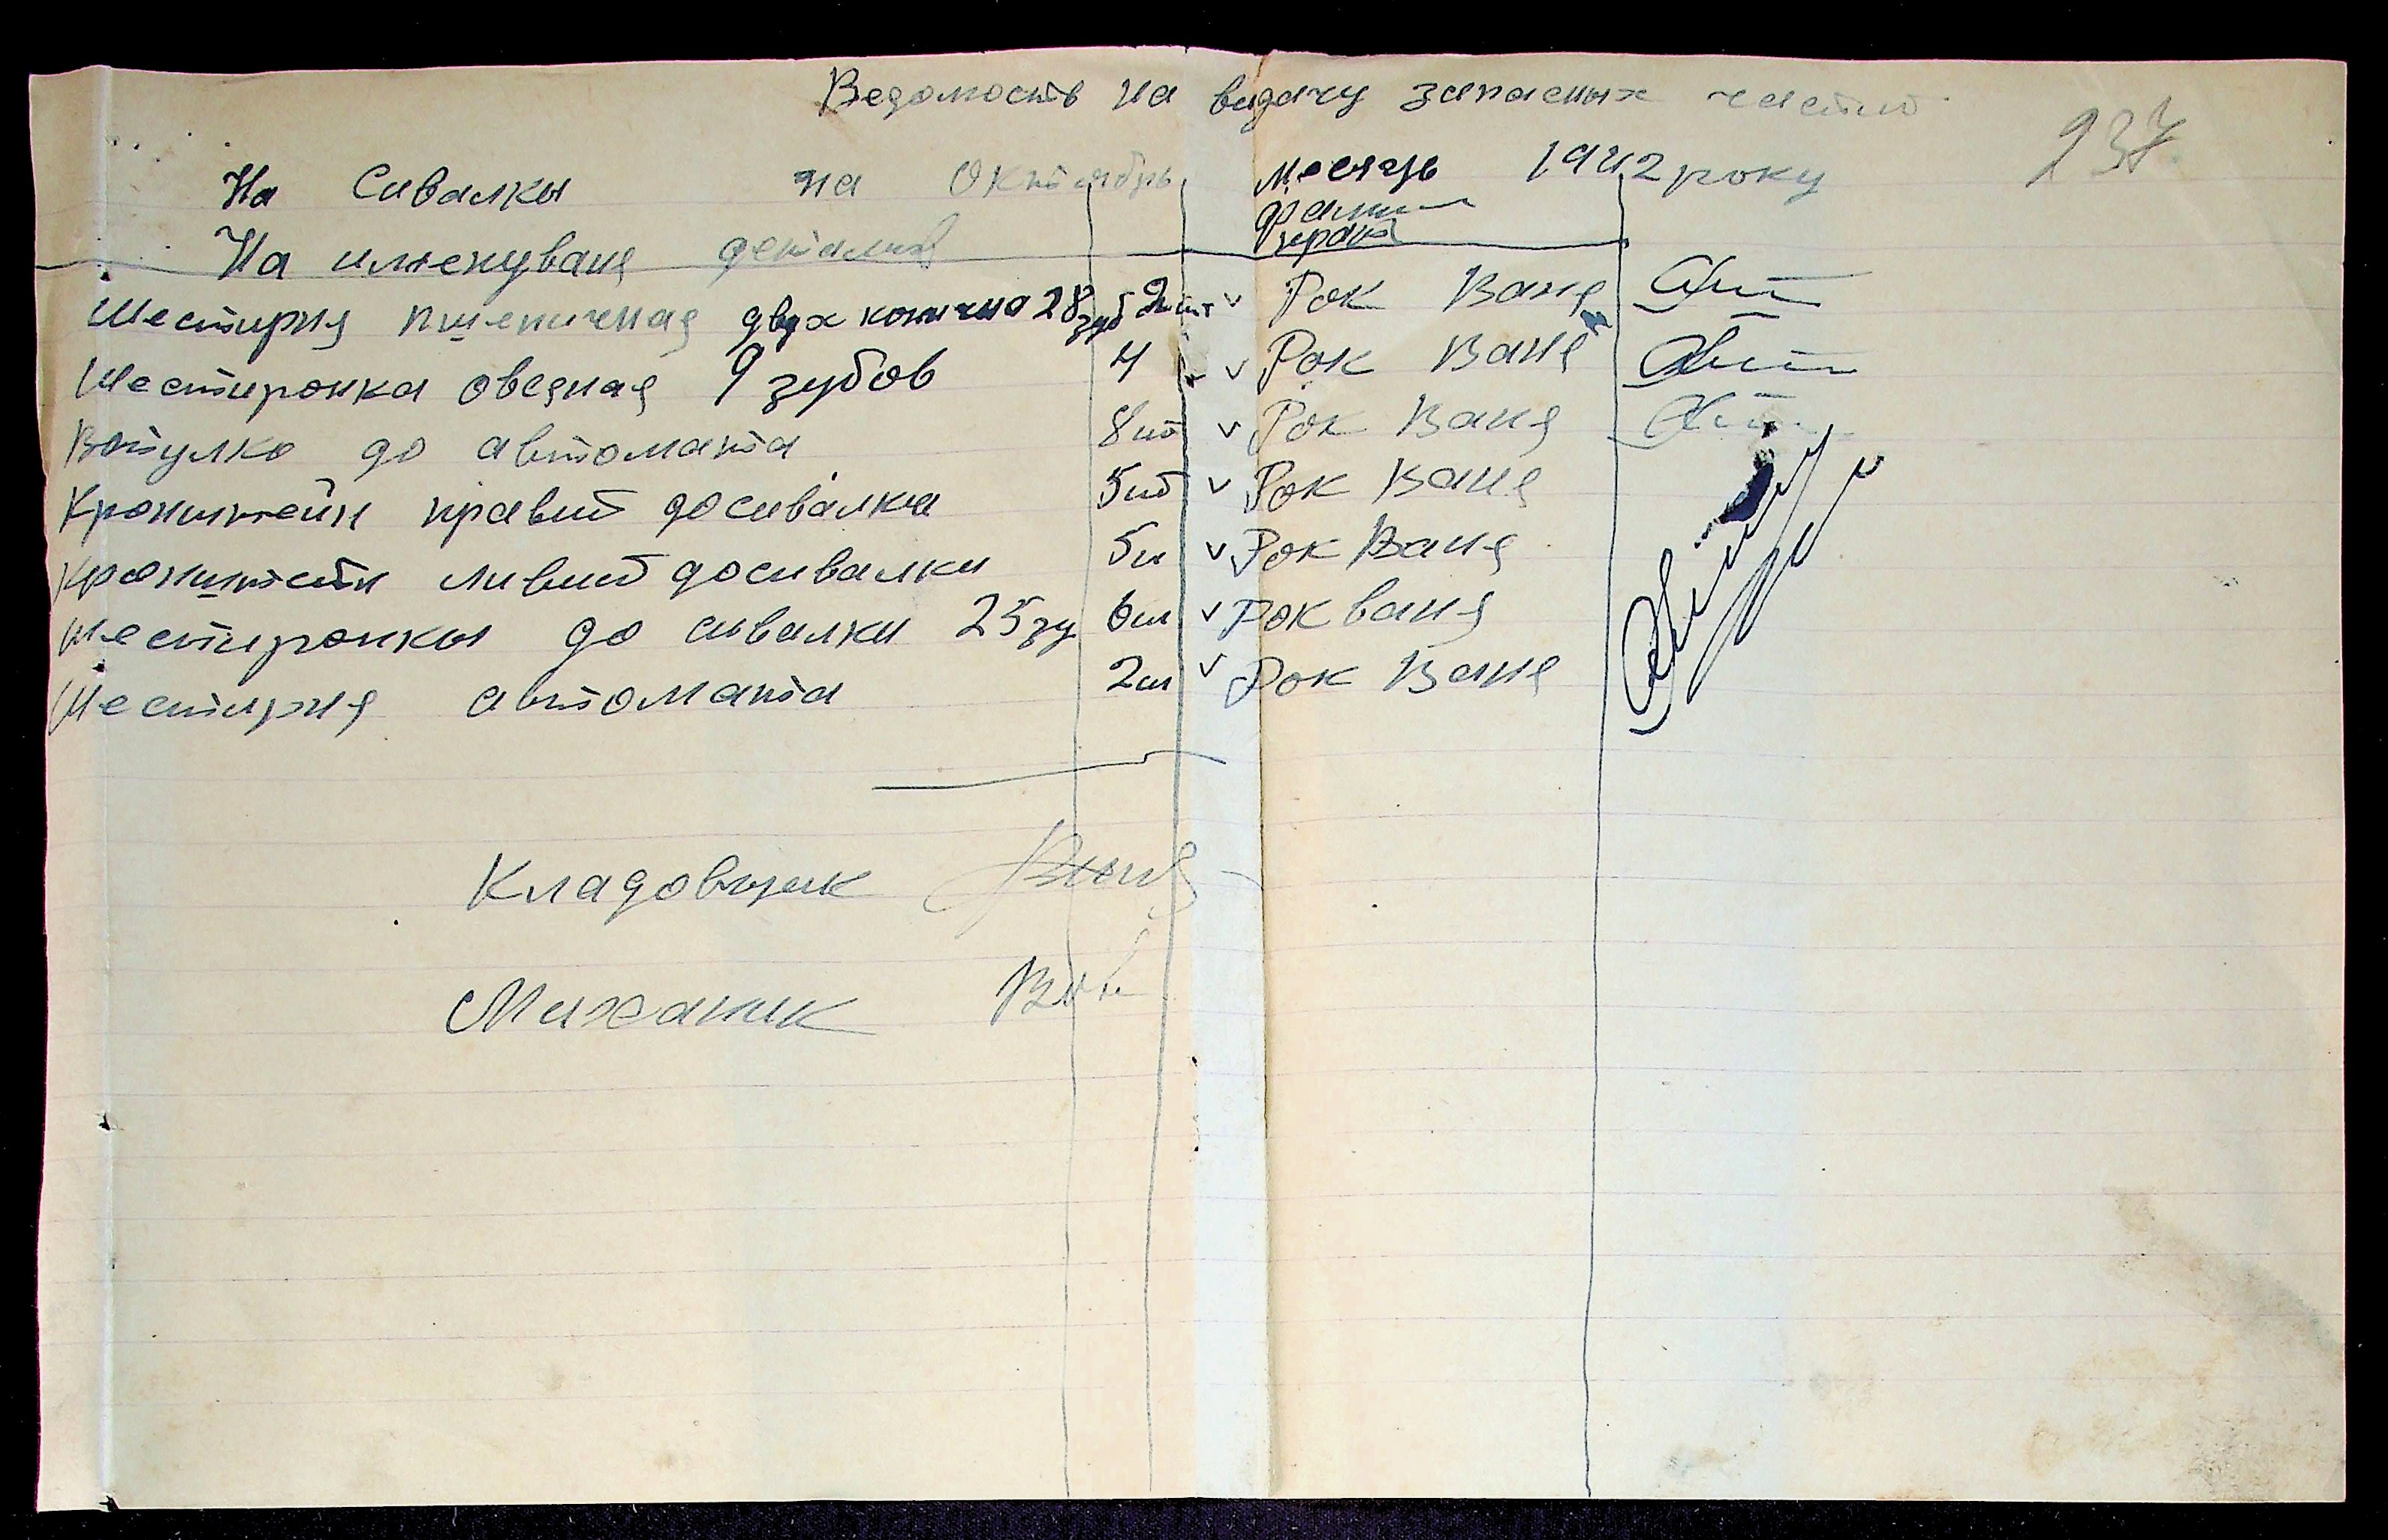 Ведомость на видачу запасных частий
237
На Сивалки на Октиябрь месяць 1942 року
На имекуваня деталий
Фамил
Шестирня пшеничная двух конична 28 зуб 2 шт v Рок Ваня
Шестиронка овсяная 9 зубов 4 v Рок Ваня
Вотулко до автомата 8 шт v Рок Ваня
Кронштейн правий до сивалки 5 шт v Рок Ваня
Кронштейн ливий до сивалки 5 ш v Рок Ваня
Шестиронкы до сивалки 25 зу 6 ш v Рок Ваня
Шестирня автомата 2 ш v Рок Ваня
Кладовщик
Миханик